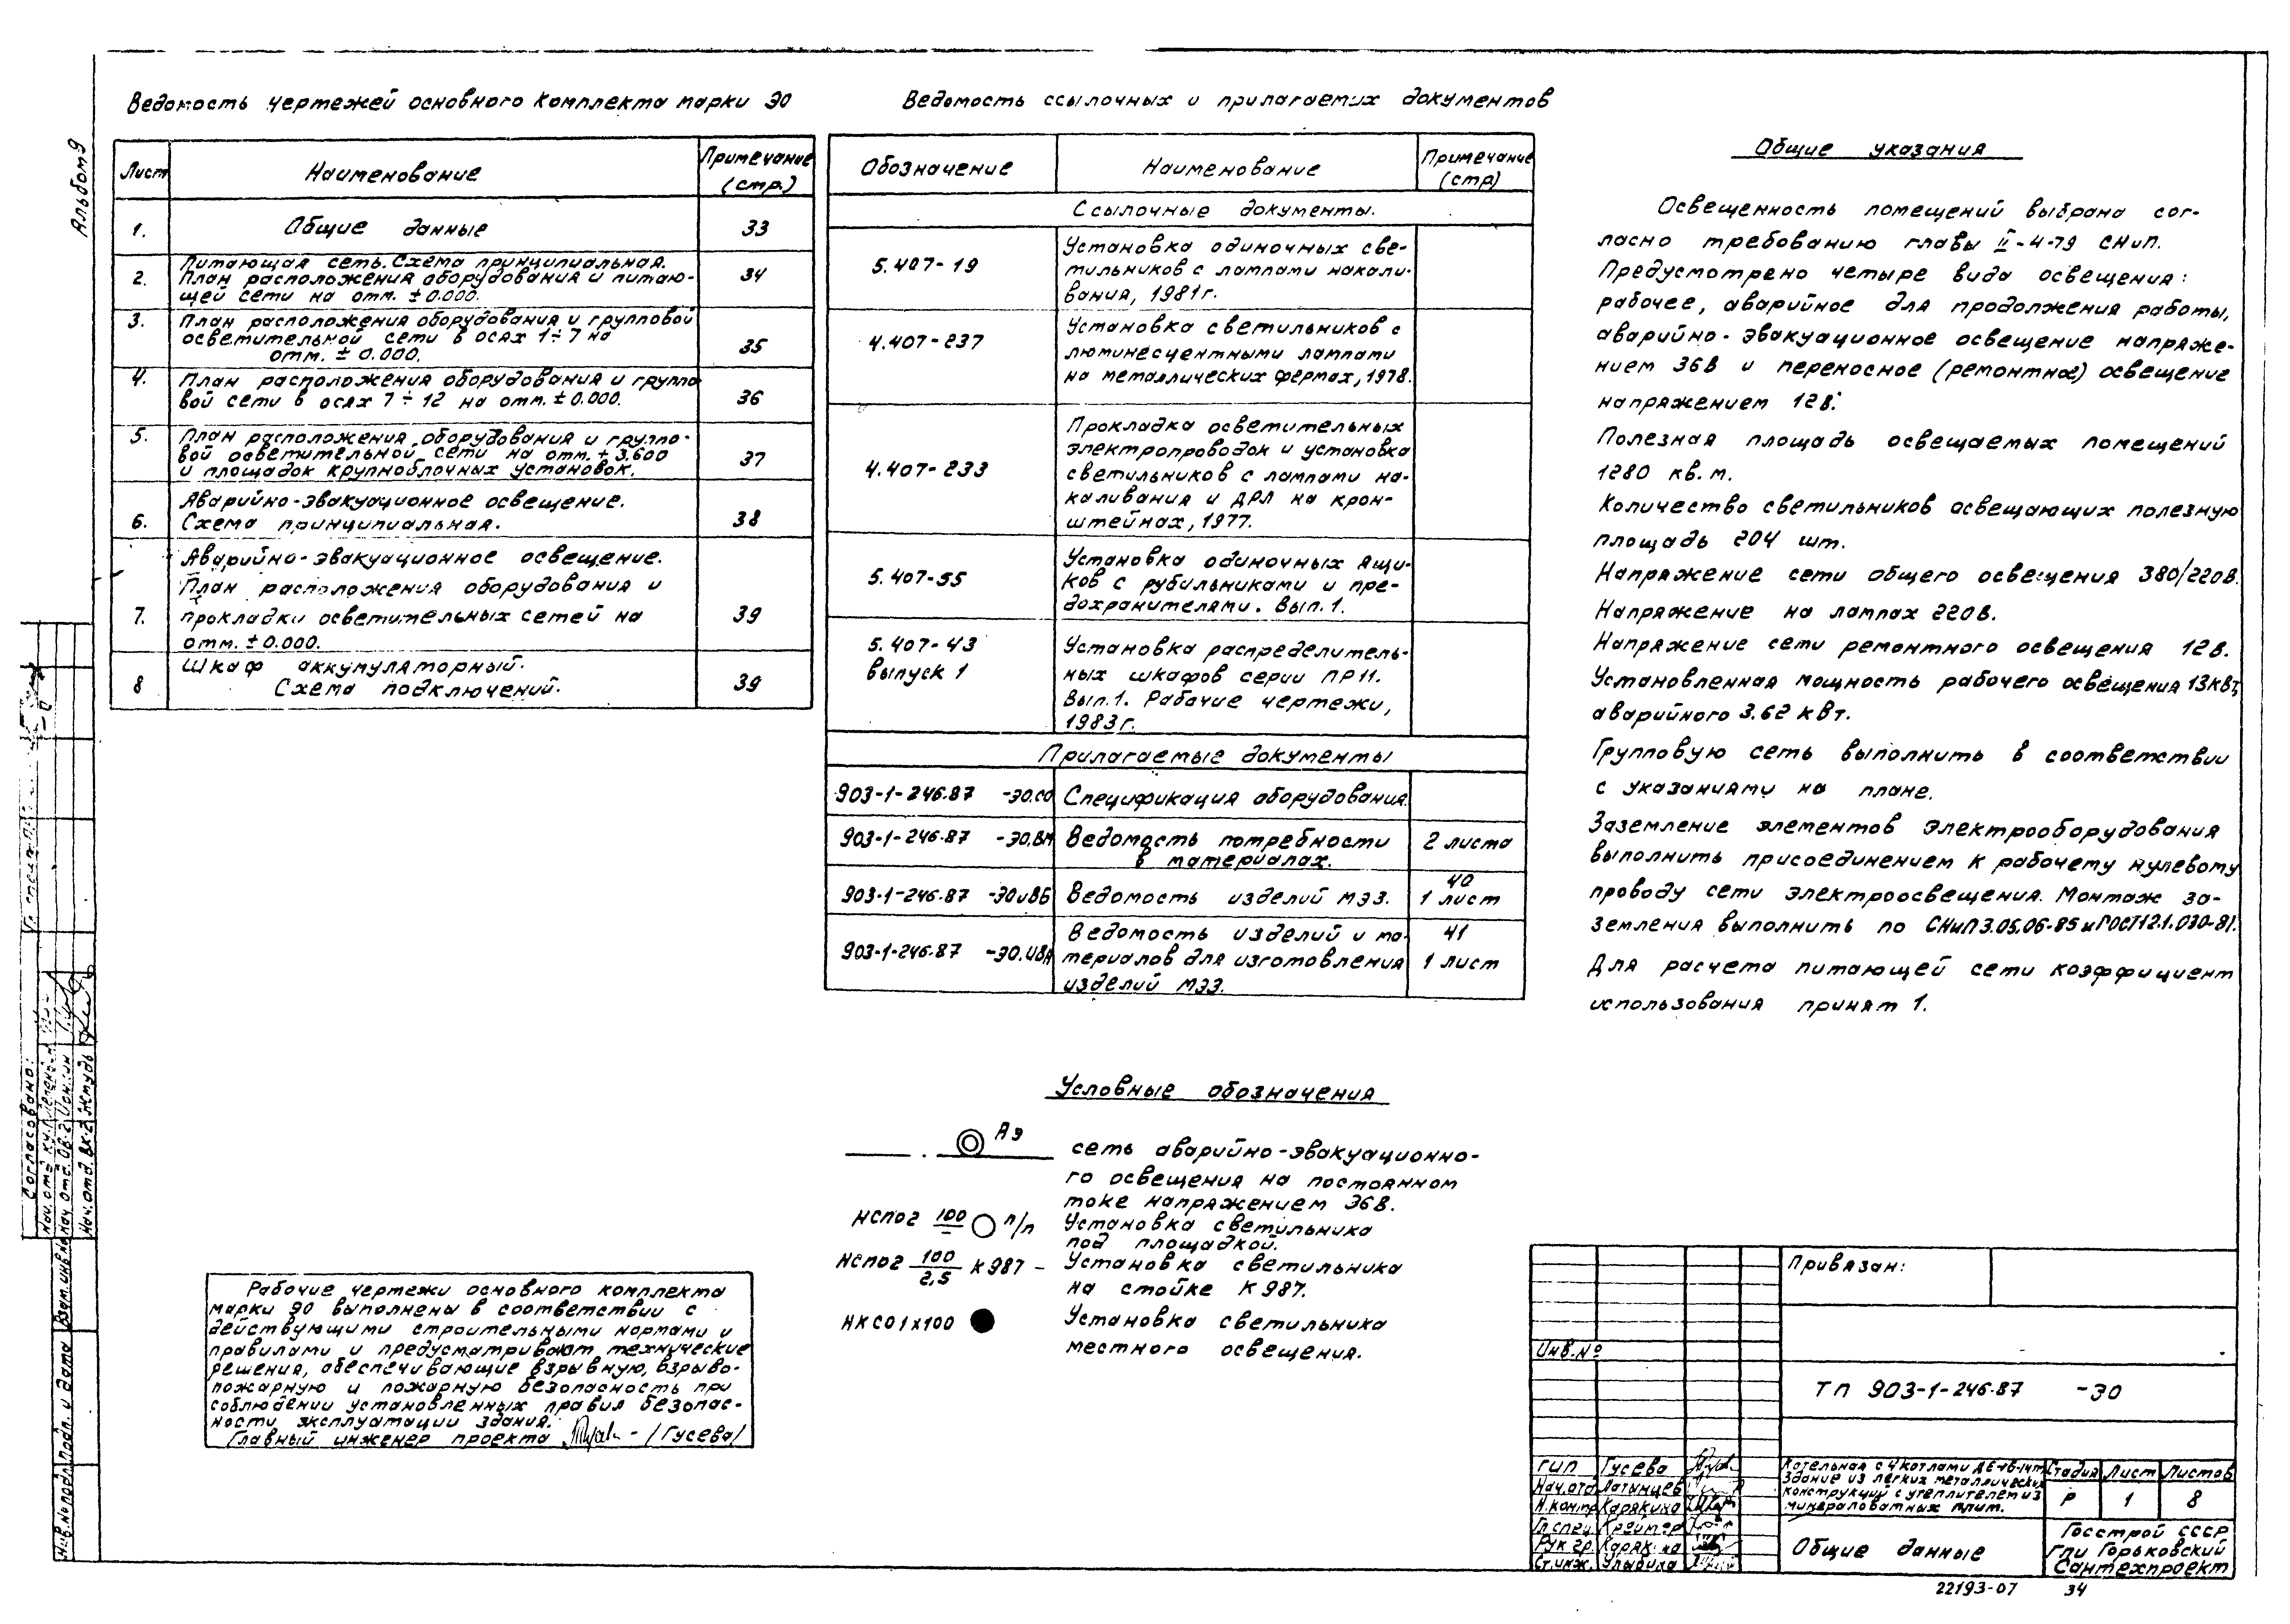 Альбом 9
Ведомость чертежей основного комплекта марки ЭО
Лист Наименование Примечание (стр.)
1. Общие данные 33
2. Питающая сеть. Схема принципиальная.
План расположения оборудования и питаю-
щей сети на отм. ±0.000. 34
3. План расположения оборудования и групповой
осветительной сети в осях 1÷7 на
отм. ±0.000. 35
4. План расположения оборудования и группо
вой сети в осях 7÷12 на отм. ±0.000. 36
5. План расположения оборудования и группо-
вой осветительной сети на отм. +3.600
и площадок крупноблочных установок. 37
6. Аварийно-эвакуационное освещение.
Схема принципиальная. 38
7. Аварийно-эвакуационное освещение.
План расположения оборудования и
прокладки осветительных сетей на
отм. ±0.000. 39
8 Шкаф аккумуляторный.
Схема подключений. 39
Ведомость ссылочных и прилагаемых документов
Обозначение Наименование Примечание (стр)
Ссылочные документы.
5.407-19 Установка одиночных све-
тильников с лампами накали-
вания, 1981г.
4.407-237 Установка светильников с
люминесцентными лампами
на металлических фермах, 1978.
4.407-233 Прокладка осветительных
электропроводок и установка
светильников с лампами на-
каливания и ДРЛ на крон-
штейнах, 1977.
5.407-55 Установка одиночных ящи-
ков с рубильниками и пре-
дохранителями. Вып. 1.
5.407-43
выпуск 1
Установка распределитель-
ных шкафов серии ПР11.
Вып. 1. Рабочие чертежи,
1983г.
Прилагаемые документы
903-1-246.87 -ЭО.СО Спецификация оборудования.
903-1-246.87 -ЭО.ВМ Ведомость потребности
в материалах. 2 листа
903-1-246.87 -ЭО ИВБ Ведомость изделий МЭЗ. 40
1 лист
903-1-246.87 -ЭО.ИВА Ведомость изделий и ма-
териалов для изготовления
изделий МЭЗ. 41
1 лист
Общие указания
Освещенность помещений выбрана сог-
ласно требованию главы II-4-79 СНиП.
Предусмотрено четыре вида освещения:
рабочее, аварийное для продолжения работы,
аварийно-эвакуационное освещение напряже-
нием 36В и переносное (ремонтное) освещение
напряжением 12В.
Полезная площадь освещаемых помещений
1280 кв.м.
Количество светильников освещающих полезную
площадь 204 шт.
Напряжение сети общего освещения 380/220В.
Напряжение на лампах 220В.
Напряжение сети ремонтного освещения 12В.
Установленная мощность рабочего освещения 13кВт,
аварийного 3.62 кВт.
Групповую сеть выполнить в соответствии
с указаниями на плане.
Заземление элементов электрооборудования
выполнить присоединением к рабочему нулевому
проводу сети электроосвещения. Монтаж за-
земления выполнить по СНиП 3.05.06-85 и ГОСТ 12.1.030-81.
Для расчета питающей сети коэффициент
использования принят 1.
Условные обозначения
АЭ сеть аварийно-эвакуационно-
го освещения на постоянном
токе напряжением 36В.
НСП02 100/— п/п Установка светильника
под площадкой.
НСП02 100/2,5 К987 – Установка светильника
на стойке К987.
НКС01х100 Установка светильника
местного освещения.
Рабочие чертежи основного комплекта
марки ЭО выполнены в соответствии с
действующими строительными нормами и
правилами и предусматривают технические
решения, обеспечивающие взрывную, взрыво-
пожарную и пожарную безопасность при
соблюдении установленных правил безопас-
ности эксплуатации здания.
Главный инженер проекта /Гусева/
Согласовано:
Нач. отд.
Нач. отд. ОВ-2
Нач. отд. ВК-2 Жмудь
Взам. инв. №
Подп. и дата
Инв. № подл.
Привязан:
Инв. №
ТП 903-1-246.87 -ЭО
ГИП Гусева
Нач. отд Латынцев
Н. контр Карякина
Гл. спец. Крейтор
Рук гр. Карякина
Ст. инж. Улыбина
Котельная с 4 котлами ДЕ-16-14гм
Здание из легких металлических
конструкций с утеплителем из
минераловатных плит.
Стадия Лист Листов
Р 1 8
Общие данные
Госстрой СССР
ГПИ Горьковский
Сантехпроект
22193-07 34